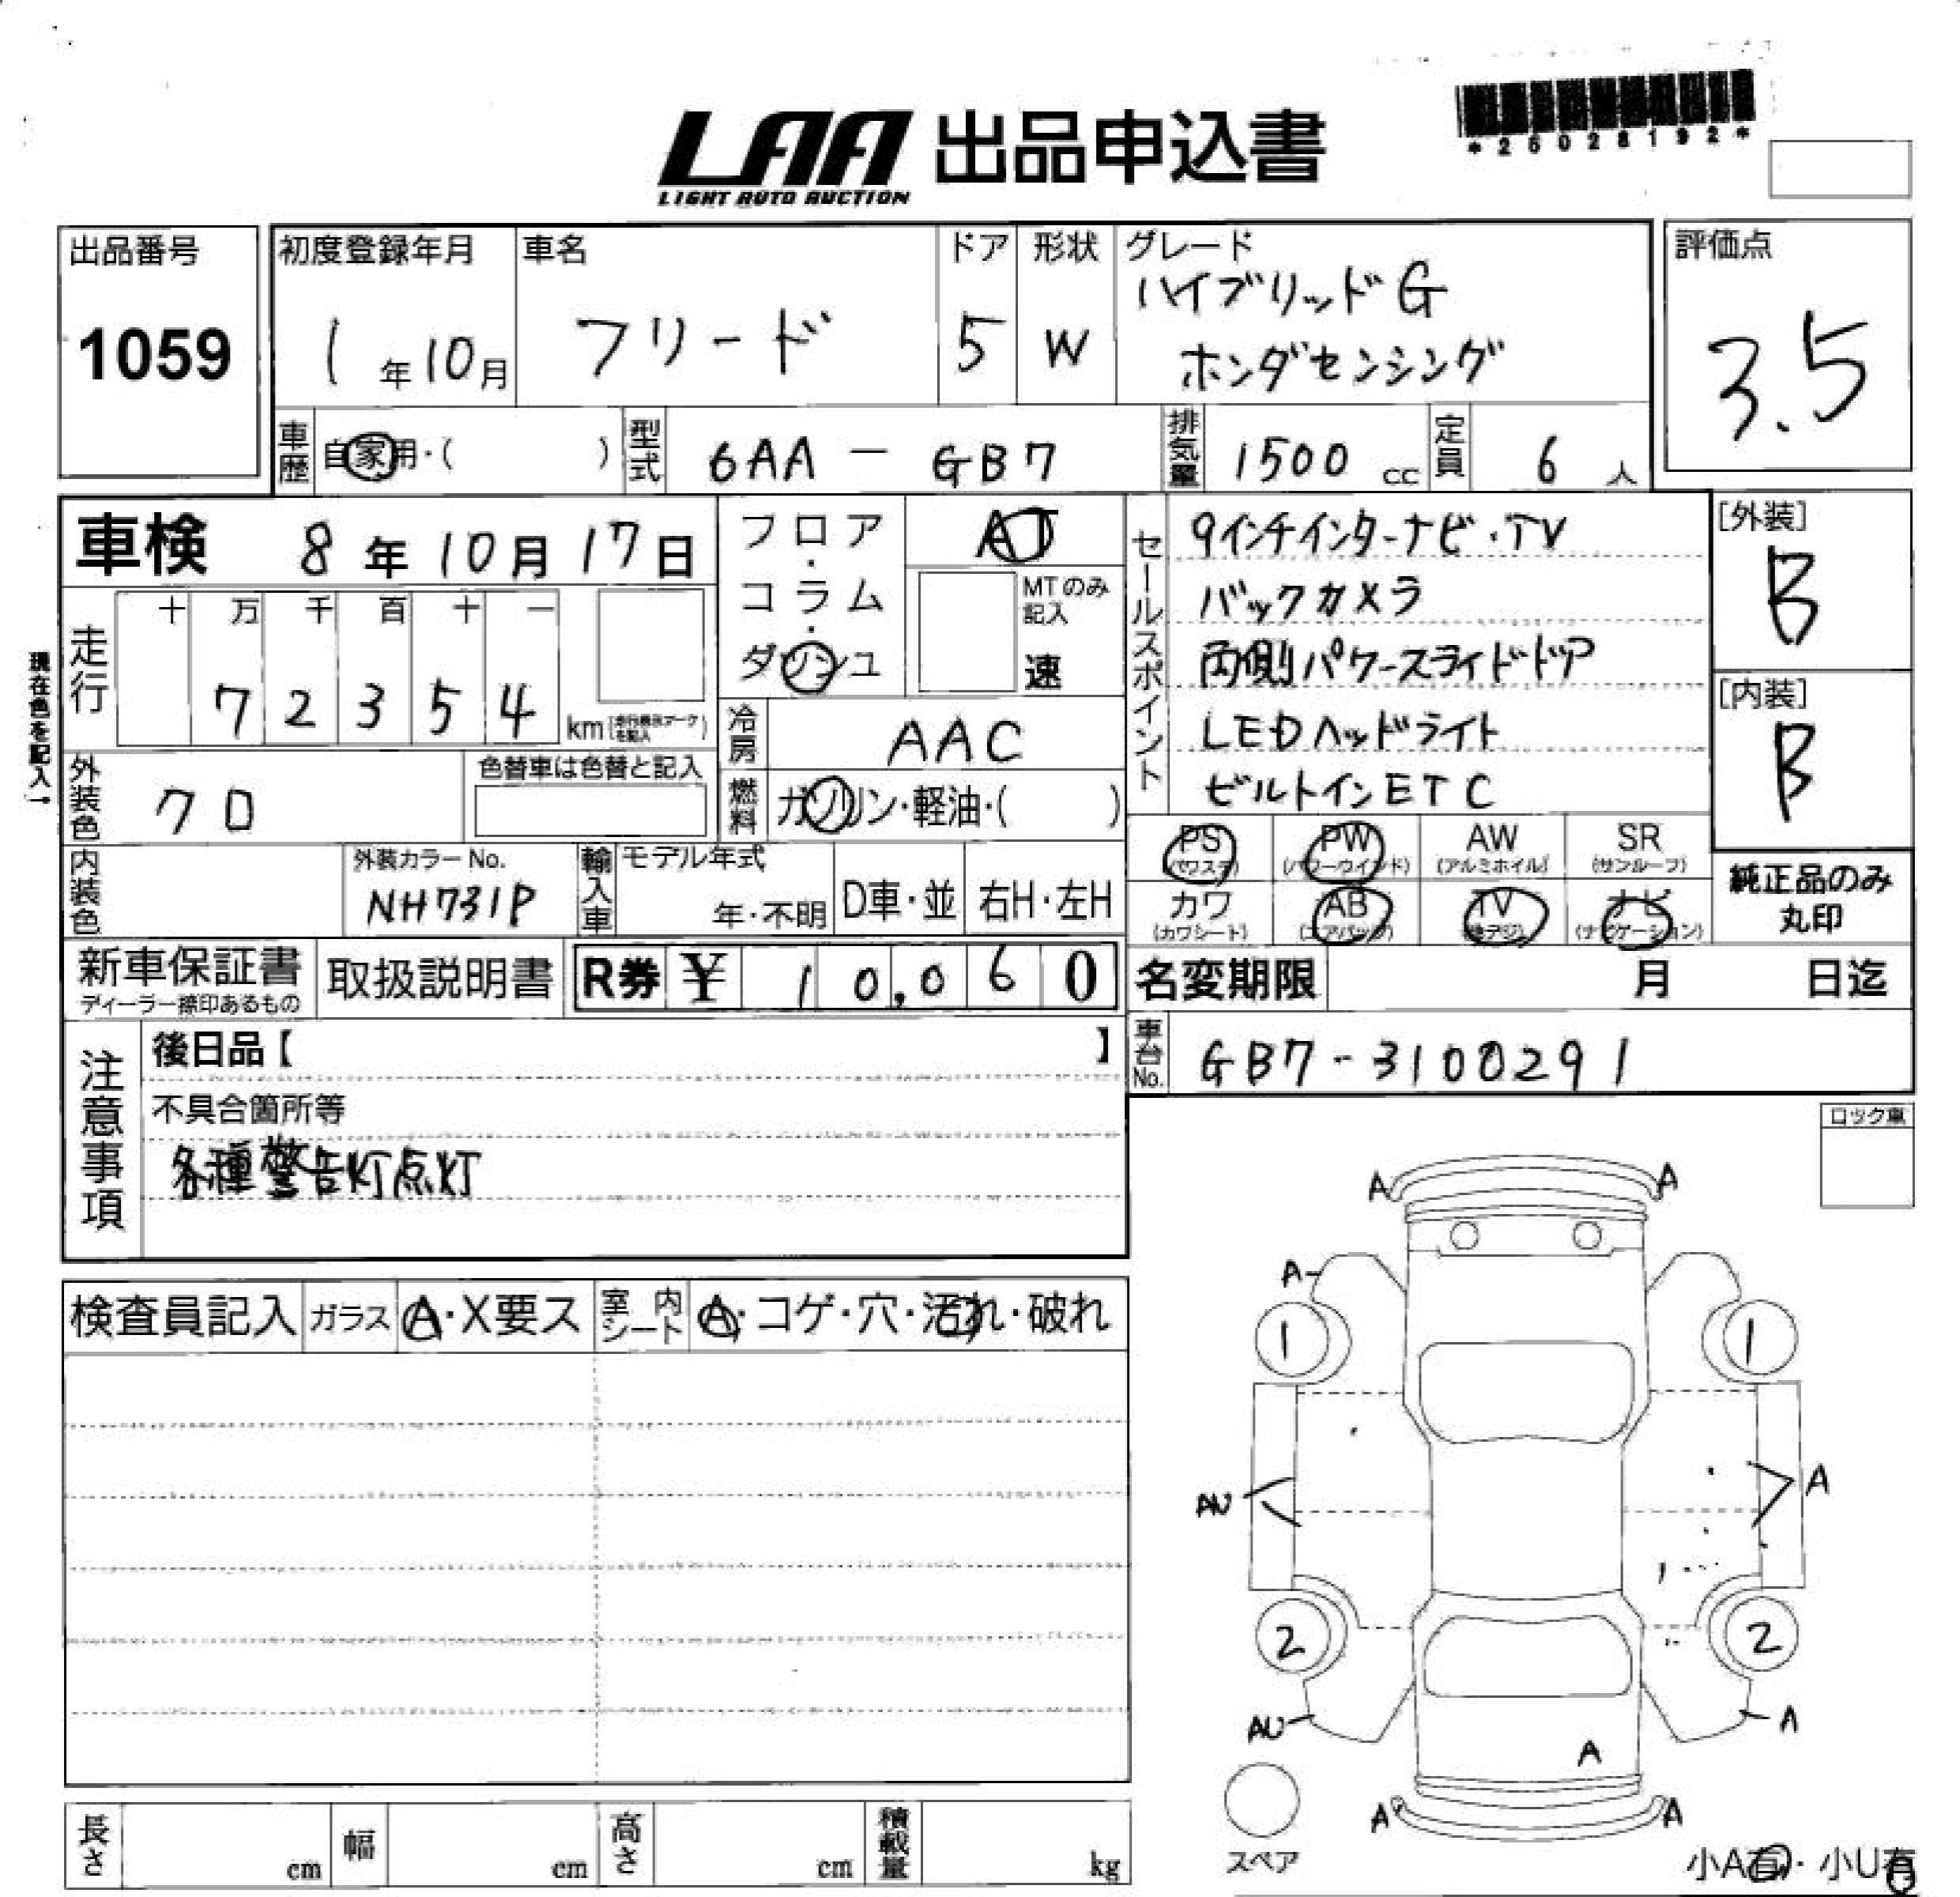 *25028192*
LAA 出品申込書
LIGHT AUTO AUCTION
出品番号
1059
初度登録年月
1年10月
車名
フリード
ドア
5
形状
W
グレード
ハイブリッドG
ホンダセンシング
評価点
3.5
車歴
自家用・( )
型式
6AA - GB7
排気量
1500cc
定員
6人
車検 8年10月17日
フロア・コラム・ダッシュ
AT
MTのみ記入
速
セールスポイント
9インチインターナビ・TV
バックカメラ
両側パワースライドドア
LEDヘッドライト
ビルトインETC
[外装]
B
[内装]
B
現在色を記入→
走行
十 万 千 百 十 一
7 2 3 5 4 km
冷房
AAC
外装色
クロ
色替車は色替と記入
燃料
ガソリン・軽油・( )
内装色
外装カラーNo.
NH731P
輸入車
モデル年式
年・不明
D車・並
右H・左H
PS (パワステ)
PW (パワーウインド)
AW (アルミホイル)
SR (サンルーフ)
カワ (カワシート)
AB (エアバッグ)
TV (地デジ)
ナビ (ナビゲーション)
純正品のみ
丸印
新車保証書
ディーラー捺印あるもの
取扱説明書
R券 ¥ 10,060
名変期限 月 日迄
車台No.
GB7-3100291
注意事項
後日品【 】
不具合箇所等
各種警告灯点灯
ロック車
検査員記入
ガラス
A・X要ス
室内シート
A・コゲ・穴・汚れ・破れ
A A
A
1 1
AU A
2 2
AU A
A
A A
スペア
小A有・小U有
長さ cm
幅 cm
高さ cm
積載量 kg